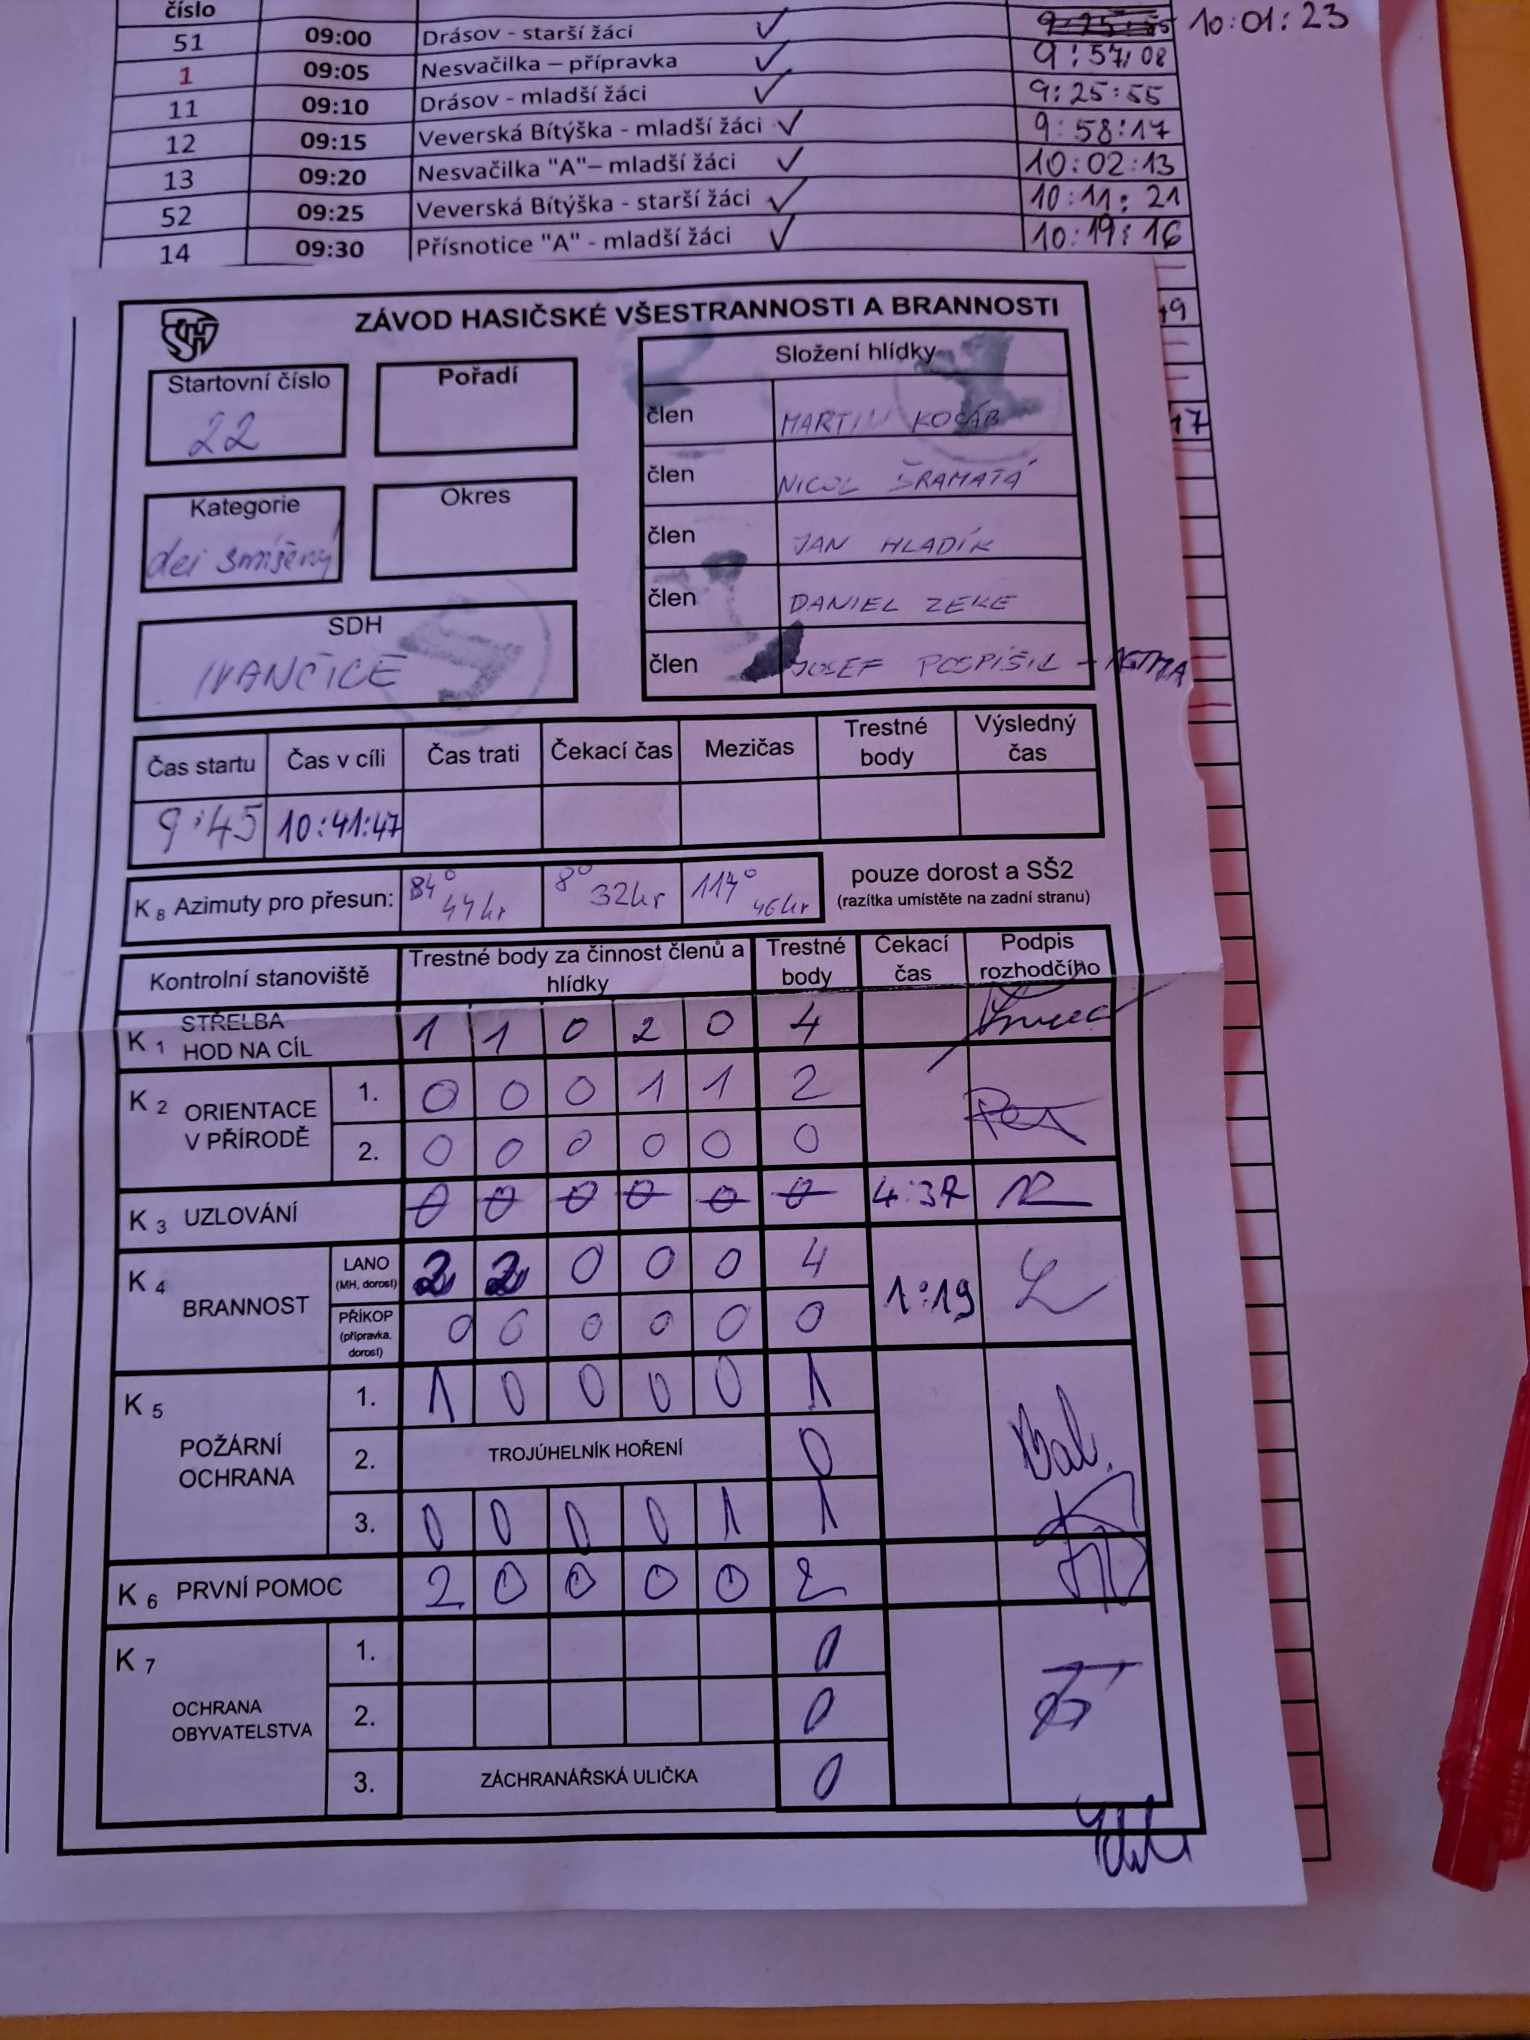 číslo
51 09:00 Drásov - starší žáci ✓ 10:01:23
1 09:05 Nesvačilka – přípravka ✓ 9:57:08
11 09:10 Drásov - mladší žáci ✓ 9:25:55
12 09:15 Veverská Bítýška - mladší žáci ✓ 9:58:17
13 09:20 Nesvačilka "A"– mladší žáci ✓ 10:02:13
52 09:25 Veverská Bítýška - starší žáci ✓ 10:11:21
14 09:30 Přísnotice "A" - mladší žáci ✓ 10:19:16
ZÁVOD HASIČSKÉ VŠESTRANNOSTI A BRANNOSTI
Startovní číslo
22
Pořadí
Kategorie
Okres
SDH
IVANČICE
Složení hlídky
člen MARTIN KOCÁB
člen NICOL ŠRAMATÁ
člen JAN HLADÍK
člen DANIEL ZEKE
člen JOSEF POSPÍŠIL - ASTMA
Čas startu Čas v cíli Čas trati Čekací čas Mezičas Trestné body Výsledný čas
9:45 10:41:47
K 8 Azimuty pro přesun: 84° 44hr 8° 32hr 114° 46hr
pouze dorost a SŠ2
(razítka umístěte na zadní stranu)
Kontrolní stanoviště Trestné body za činnost členů a hlídky Trestné body Čekací čas Podpis rozhodčího
K 1 STŘELBA HOD NA CÍL 1 1 0 2 0 4
K 2 ORIENTACE V PŘÍRODĚ
1. 0 0 0 1 1 2
2. 0 0 0 0 0 0
K 3 UZLOVÁNÍ 0 0 0 0 0 0 4:37
K 4 BRANNOST
LANO (MH, dorost) 2 2 0 0 0 4 1:19
PŘÍKOP (přípravka, dorost) 0 0 0 0 0 0
K 5 POŽÁRNÍ OCHRANA
1. 1 0 0 0 0 1
2. TROJÚHELNÍK HOŘENÍ 0
3. 0 0 0 0 1 1
K 6 PRVNÍ POMOC 2 0 0 0 0 2
K 7 OCHRANA OBYVATELSTVA
1. 0
2. 0
3. ZÁCHRANÁŘSKÁ ULIČKA 0